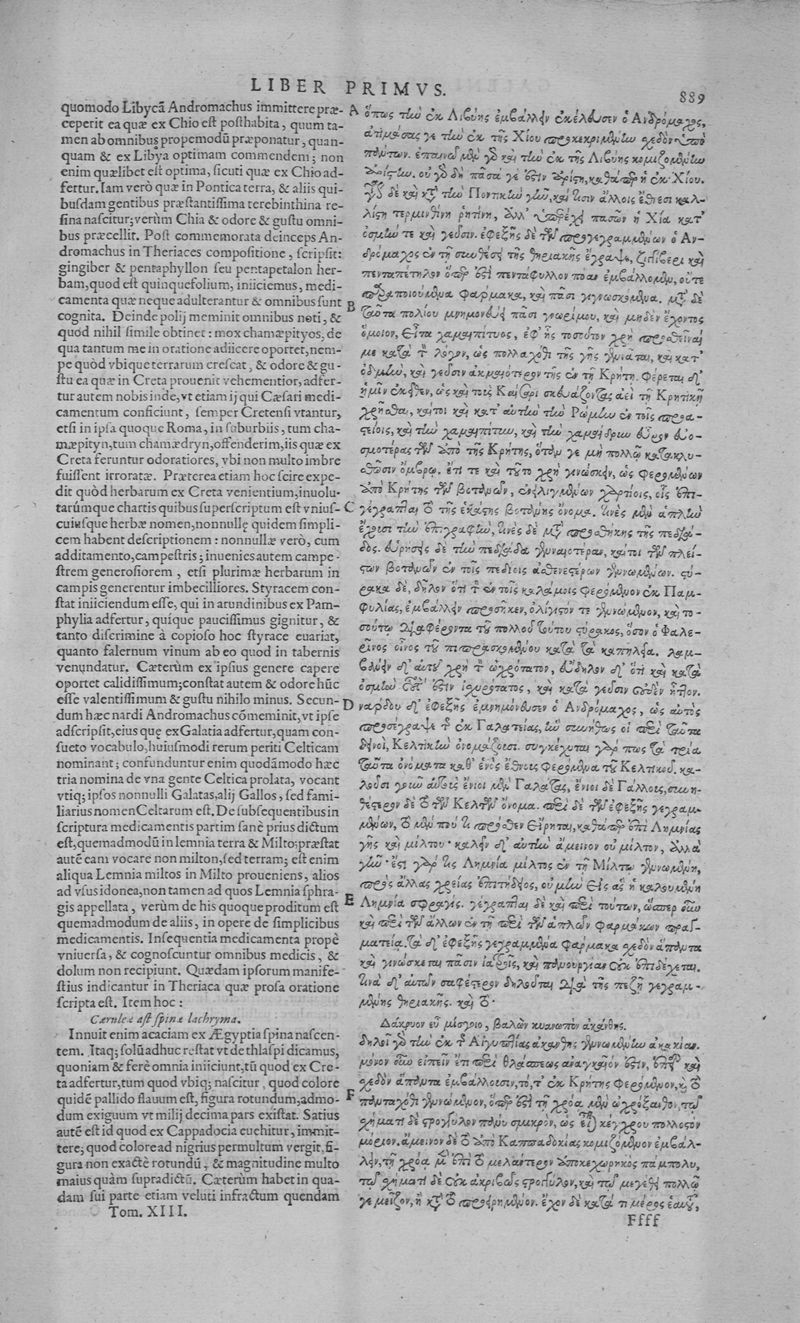 LIBER PRIMVS.
889
quomodo Libycā Andromachus immittere præ-
ceperit ea quæ ex Chio eſt poſthabita, quum ta-
men ab omnibus propemodū præponatur, quan-
quam & ex Libya optimam commendem; non
enim quælibet eſt optima, ſicuti quæ ex Chio ad-
fertur. Iam verò quæ in Pontica terra, & aliis qui-
buſdam gentibus præſtantiſſima terebinthina re-
ſina naſcitur; verùm Chia & odore & guſtu omni-
bus præcellit. Poſt commemorata deinceps An-
dromachus in Theriaces compoſitione, ſcripſit:
gingiber & pentaphyllon ſeu pentapetalon her-
bam, quod eſt quinquefolium, iniiciemus, medi-
camenta quæ neque adulterantur & omnibus ſunt
cognita. Deinde polij meminit omnibus noti, &
quod nihil ſimile obtinet: mox chamæpityos, de
qua tantum me in oratione adiicere oportet, nem-
pe quòd vbique terrarum creſcat, & odore & gu-
ſtu ea quæ in Creta prouenit vehementior, adfer-
tur autem nobis inde, vt etiam ij qui Cæſari medi-
camentum conficiunt, ſemper Cretenſi vtantur,
etſi in ipſa quoque Roma, in ſuburbiis, tum cha-
mæpityn, tum chamædryn, offenderim, iis quæ ex
Creta feruntur odoratiores, vbi non multo imbre
fuiſſent irroratæ. Præterea etiam hoc ſcire expe-
dit quòd herbarum ex Creta venientium, inuolu-
tarúmque chartis quibus ſuperſcriptum eſt vniuſ-
cuiuſque herbæ nomen, nonnullę quidem ſimpli-
cem habent deſcriptionem: nonnullæ verò, cum
additamento, campeſtris; inuenies autem campe-
ſtrem generoſiorem, etſi plurimæ herbarum in
campis generentur imbecilliores. Styracem con-
ſtat iniiciendum eſſe, qui in arundinibus ex Pam-
phylia adfertur, quique pauciſſimus gignitur, &
tanto diſcrimine à copioſo hoc ſtyrace euariat,
quanto falernum vinum ab eo quod in tabernis
venundatur. Cæterùm ex ipſius genere capere
oportet calidiſſimum; conſtat autem & odore hūc
eſſe valentiſſimum & guſtu nihilo minus. Secun-
dum hæc nardi Andromachus cōmeminit, vt ipſe
adſcripſit, eius quę ex Galatia adfertur, quam con-
ſueto vocabulo, huiuſmodi rerum periti Celticam
nominant; confunduntur enim quodāmodo hæc
tria nomina de vna gente Celtica prolata, vocant
vtiq; ipſos nonnulli Galatas, alij Gallos, ſed fami-
liarius nomen Celtarum eſt. De ſubſequentibus in
ſcriptura medicamentis partim ſanè prius dictum
eſt, quemadmodū in lemnia terra & Milto; præſtat
autē eam vocare non milton, ſed terram; eſt enim
aliqua Lemnia miltos in Milto proueniens, alios
ad vſus idonea, non tamen ad quos Lemnia ſphra-
gis appellata, verùm de his quoque proditum eſt
quemadmodum de aliis, in opere de ſimplicibus
medicamentis. Inſequentia medicamenta propè
vniuerſa, & cognoſcuntur omnibus medicis, &
dolum non recipiunt. Quædam ipſorum manife-
ſtius indicantur in Theriaca quæ proſa oratione
ſcripta eſt. Item hoc:
Cærulea aſt ſpinæ lachryma.
Innuit enim acaciam ex Ægyptia ſpina naſcen-
tem. Itaq; ſolū adhuc reſtat vt de thlaſpi dicamus,
quoniam & ferè omnia iniiciunt, tū quod ex Cre-
ta adfertur, tum quod vbiq; naſcitur, quod colore
quidē pallido flauum eſt, figura rotundum, admo-
dum exiguum vt milij decima pars exiſtat. Satius
autē eſt id quod ex Cappadocia euehitur, immit-
tere; quod colore ad nigrius permultum vergit, fi-
gura non exactè rotundū, & magnitudine multo
maius quàm ſupradictū. Cæterùm habet in qua-
dam ſui parte etiam veluti infractum quendam
Tom. XIII.
A
B
C
D
E
F
ὅπως τὴν ἐκ Λιβύης ἐμβάλλειν ἐκέλευσεν ὁ Ἀνδρόμαχος,
ἀτιμάσας γε τὴν ἐκ τῆς Χίου προκεκριμένην σχεδὸν ὑπὸ
πάντων. ἐπαινῶ μὲν γὰρ καὶ τὴν ἐκ τῆς Λιβύης κομιζομένην
ἀρίστην. οὐ γὰρ δὴ πᾶσά γε ἐστὶν ἀρίστη, καθάπερ ἡ ἐκ Χίου.
δὲ καὶ κατὰ τὴν Ποντικὴν γῆν, καί τισιν ἄλλοις ἔθνεσι καλ-
λίστη τερμινθίνη ῥητίνη, ἀλλ' ὑπερέχει πασῶν ἡ Χία κατ'
ὀσμήν τε καὶ γεῦσιν. ἐφεξῆς δὲ τῶν προγεγραμμένων ὁ Ἀν-
δρόμαχος ἐν τῇ συνθέσει τῆς θηριακῆς ἔγραψε, ζιγγίβερι καὶ
πενταπέτηλον ὅπερ ἐστὶ πεντάφυλλον πόαν ἐμβάλλομεν, οὔτε
παραποιούμενα φάρμακα, καὶ πᾶσι γιγνωσκόμενα. μετὰ δὲ
ταῦτα πολίου μνημονεύει πᾶσι γνωρίμου, καὶ μηδὲν ἔχοντος
ὅμοιον, εἶτα χαμαιπίτυος, ἐφ' ἧς τοσοῦτον χρὴ προσθεῖναί
με κατὰ τὸν λόγον, ὡς πολλαχόθι τῆς γῆς γεννᾶται, καὶ κατ'
ὀδμὴν, καὶ γεῦσιν ἀκμαιότερον τῆς ἐν τῇ Κρήτῃ. φέρεται δ'
ἡμῖν ἐκεῖθεν, ὡς καὶ τοὺς Καίσαρι σκευάζοντας ἀεὶ τῇ Κρητικῇ
χρῆσθαι, καίτοι καὶ κατ' αὐτὴν τὴν Ῥώμην ἐν τοῖς προα-
στείοις, καὶ τὴν χαμαίπιτυν, καὶ τὴν χαμαίδρυν εὗρον εὐο-
σμοτέρας τῶν ἀπὸ τῆς Κρήτης, ὅταν γε μὴ πολλῷ κατακλυ-
σθῶσιν ὄμβρῳ. ἔτι τε καὶ τοῦτο χρὴ γινώσκειν, ὡς φερομένων
ἀπὸ Κρήτης τῶν βοτανῶν, ἐνειλιγμένων χάρτιοις, οἷς ἐπι-
γέγραπται τὸ τῆς ἑκάστης βοτάνης ὄνομα. τινὲς μὲν ἁπλῆν
ἔχουσι τὴν ἐπιγραφὴν, τινὲς δὲ μετὰ προσθήκης τῆς πεδιά-
δος. εὑρήσεις δὲ τὴν πεδιάδα γενναιοτέραν, καίτοι τῶν πλεί-
στων βοτανῶν ἐν τοῖς πεδίοις ἀσθενεστέρων γεννωμένων. στύ-
ρακα δὲ, δῆλον ὅτι τὸν ἐν τοῖς καλάμοις φερόμενον ἐκ Παμ-
φυλίας, ἐμβάλλειν προσῆκεν, ὀλίγιστόν τε γεννώμενον, καὶ το-
σούτῳ διαφέροντα τοῦ πολλοῦ τούτου στύρακος, ὅσον ὁ Φαλε-
ρῖνος οἶνος τοῦ πιπρασκομένου κατὰ τὰ καπηλεῖα. λαμ-
βάνειν δ' αὐτοῦ χρὴ τὸν ὠχρότατον, εὔδηλον δ' ὅτι καὶ κατὰ
ὀσμὴν οὗτός ἐστιν ἰσχυρότατος, καὶ κατὰ γεῦσιν οὐδὲν ἧττον.
νάρδου δ' ἐφεξῆς ἐμνημόνευσεν ὁ Ἀνδρόμαχος, ὡς αὐτὸς
προσέγραψε τῆς ἐκ Γαλατείας, ἣν συνήθως οἱ περὶ ταῦτα
δεινοὶ, Κελτικὴν ὀνομάζουσι. συγκέχυται γάρ πως τὰ τρία
ταῦτα ὀνόματα καθ' ἑνὸς ἔθνους φερόμενα τοῦ Κελτικοῦ. κα-
λοῦσι γοῦν αὐτοὺς ἔνιοι μὲν Γαλάτας, ἔνιοι δὲ Γάλλους, συνη-
θέστερον δὲ τὸ τῶν Κελτῶν ὄνομα. περὶ δὲ τῶν ἐφεξῆς γεγραμ-
μένων, τὸ μέν που τι πρόσθεν εἴρηται, καθάπερ ἐπὶ Λημνίας
γῆς καὶ μίλτου· καλεῖν δ' αὐτὴν ἄμεινον οὐ μίλτον, ἀλλὰ
γῆν· ἔστι γάρ τις Λημνία μίλτος ἐν τῇ Μίλτῳ γεννωμένη,
πρὸς ἄλλας χρείας ἐπιτήδειος, οὐ μὴν εἰς ἃς ἡ καλουμένη
Λημνία σφραγίς. γέγραπται δὲ καὶ περὶ τούτων, ὥσπερ οὖν
καὶ περὶ τῶν ἄλλων ἐν τῇ περὶ τῶν ἁπλῶν φαρμάκων πραγ-
ματείᾳ. τὰ δ' ἐφεξῆς γεγραμμένα φάρμακα σχεδὸν ἅπαντα
καὶ γινώσκεται πᾶσιν ἰατροῖς, καὶ πανουργίαν οὐκ ἐπιδέχεται.
τινὰ δ' αὐτῶν σαφέστερον δηλοῦται διὰ τῆς πεζῇ γεγραμ-
μένης θηριακῆς. καὶ τὸ·
Δάκρυον εὖ μίσγοιο, βαλὼν κυανωπὸν ἀκάνθης.
δηλοῖ γὰρ τὴν ἐκ τῆς Αἰγυπτίας ἀκάνθης γεννωμένην ἀκακίαν.
μόνον οὖν εἰπεῖν ἔτι περὶ θλάσπεως ἀναγκαῖον ἐστὶν, ἐπεὶ καὶ
σχεδὸν ἅπαντα ἐμβάλλουσιν, τό, τ' ἐκ Κρήτης φερόμενον, καὶ τὸ
πανταχόθι γεννώμενον, ὅπερ ἐστὶ τῇ χρόᾳ μὲν ὠχρόξανθον, τῷ
σχήματι δὲ στρογγύλον πάνυ σμικρὸν, ὡς εἶναι κέγχρου πολλοστὸν
μόριον. ἄμεινον δὲ τὸ ἀπὸ Καππαδοκίας κομιζόμενον ἐμβάλ-
λειν, τῇ χρόᾳ μὲν ἐπὶ τὸ μελάντερον ἀποκεχωρηκὸς πάμπολυ,
τῷ σχήματι δὲ οὐκ ἀκριβῶς στρογγύλον, καὶ τῷ μεγέθει πολλῷ
γε μεῖζον, ἢ κατὰ τὸ προειρημένον. ἔχον δὲ κατά τι μέρος ἑαυτοῦ,
Ffff